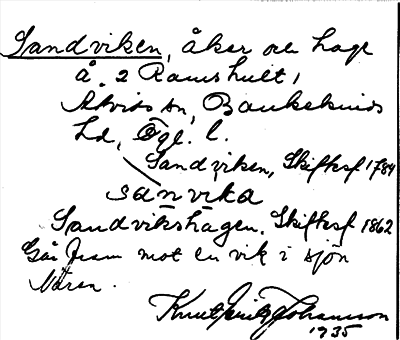 Sandviken, åker och hage
å 2 Ramshult,
Åtvids sn, Bankekinds
hd, Ögl. l.
Sandviken, Skifteskf 1784
sanvika
Sandvikshagen, Skifteskf 1862
Går fram mot en vik i sjön
Nären.
Knut Fritz Johansson
1935